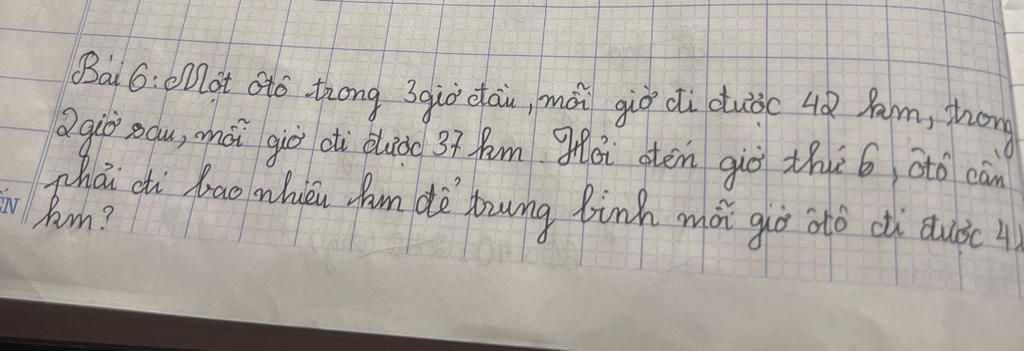 Bài 6: Một ôtô trong 3 giờ đầu, mỗi giờ đi được 42 km, trong
2 giờ sau, mỗi giờ đi được 37 km. Hỏi đến giờ thứ 6, ôtô cần
phải đi bao nhiêu km để trung bình mỗi giờ ôtô đi được
km?